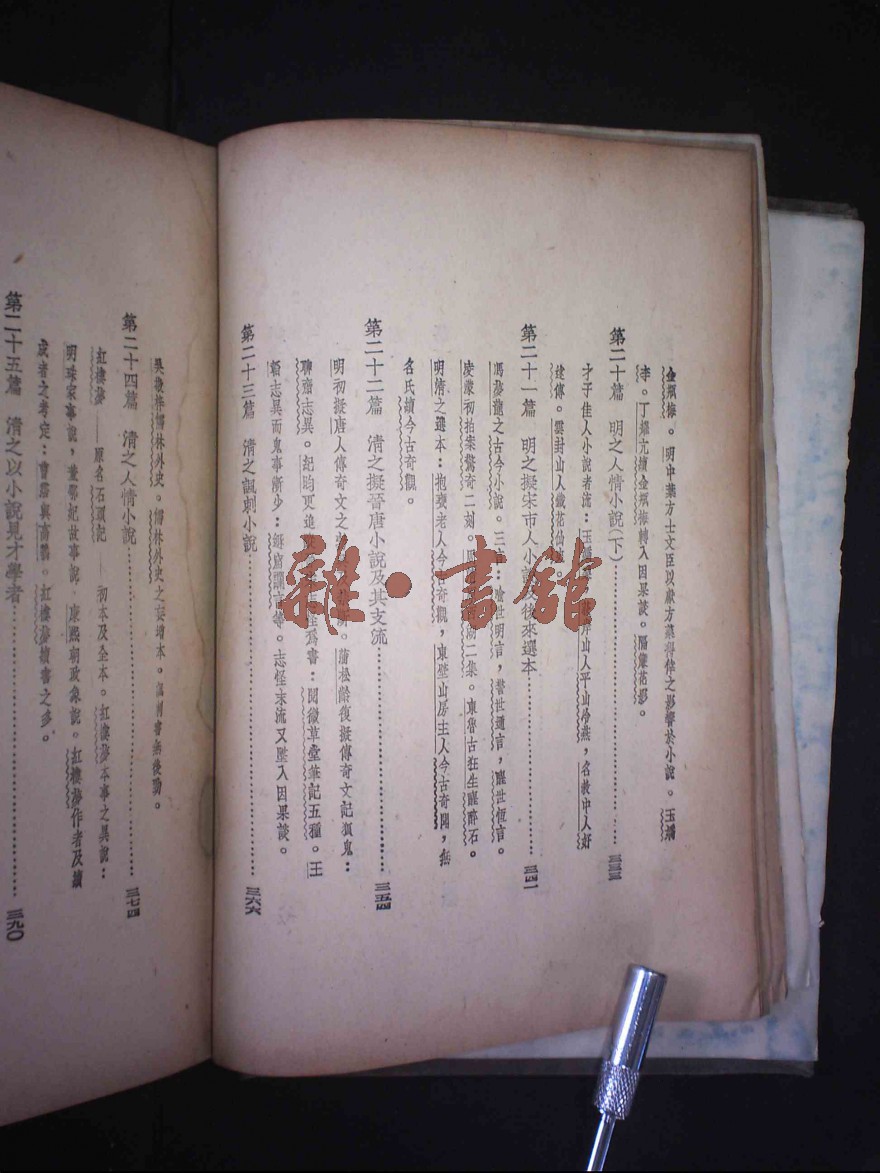 金瓶梅。明中葉方士文臣以獻方藥得倖之影響於小說。玉嬌
李。丁耀亢續金瓶梅轉入因果談。隔簾花影。
第二十篇 明之人情小說(下)……三三三
才子佳人小說者流:玉嬌梨,荻岸山人平山冷燕,名教中人好
逑傳。雲封山人鐵花仙
第二十一篇 明之擬宋市人小說後來選本……三四一
馮夢龍之古今小說。三言:喻世明言,警世通言,醒世恆言。
凌濛初拍案驚奇二刻。湖二集。東魯古狂生醉醒石。
明清之選本:抱甕老人今古奇觀,東壁山房主人今古奇聞,無
名氏續今古奇觀。
第二十二篇 清之擬晉唐小說及其支流……三五四
明初擬唐人傳奇文之。蒲松齡復擬傳奇文記狐鬼:
聊齋志異。紀昀更追書:閱微草堂筆記五種。王
韜志異而鬼事漸少:等。志怪末流又墜入因果談。
第二十三篇 清之諷刺小說……三六六
吳敬梓儒林外史。儒林外史之妄增本。諷刺書無後勁。
第二十四篇 清之人情小說……三七四
紅樓夢——原名石頭記——初本及全本。紅樓夢本事之異說:
明珠家事說,董鄂妃故事說,康熙朝政象說。紅樓夢作者及續
成者之考定:曹霑與高鶚。紅樓夢續書之多。
第二十五篇 清之以小說見才學者……三九〇
雜·書館